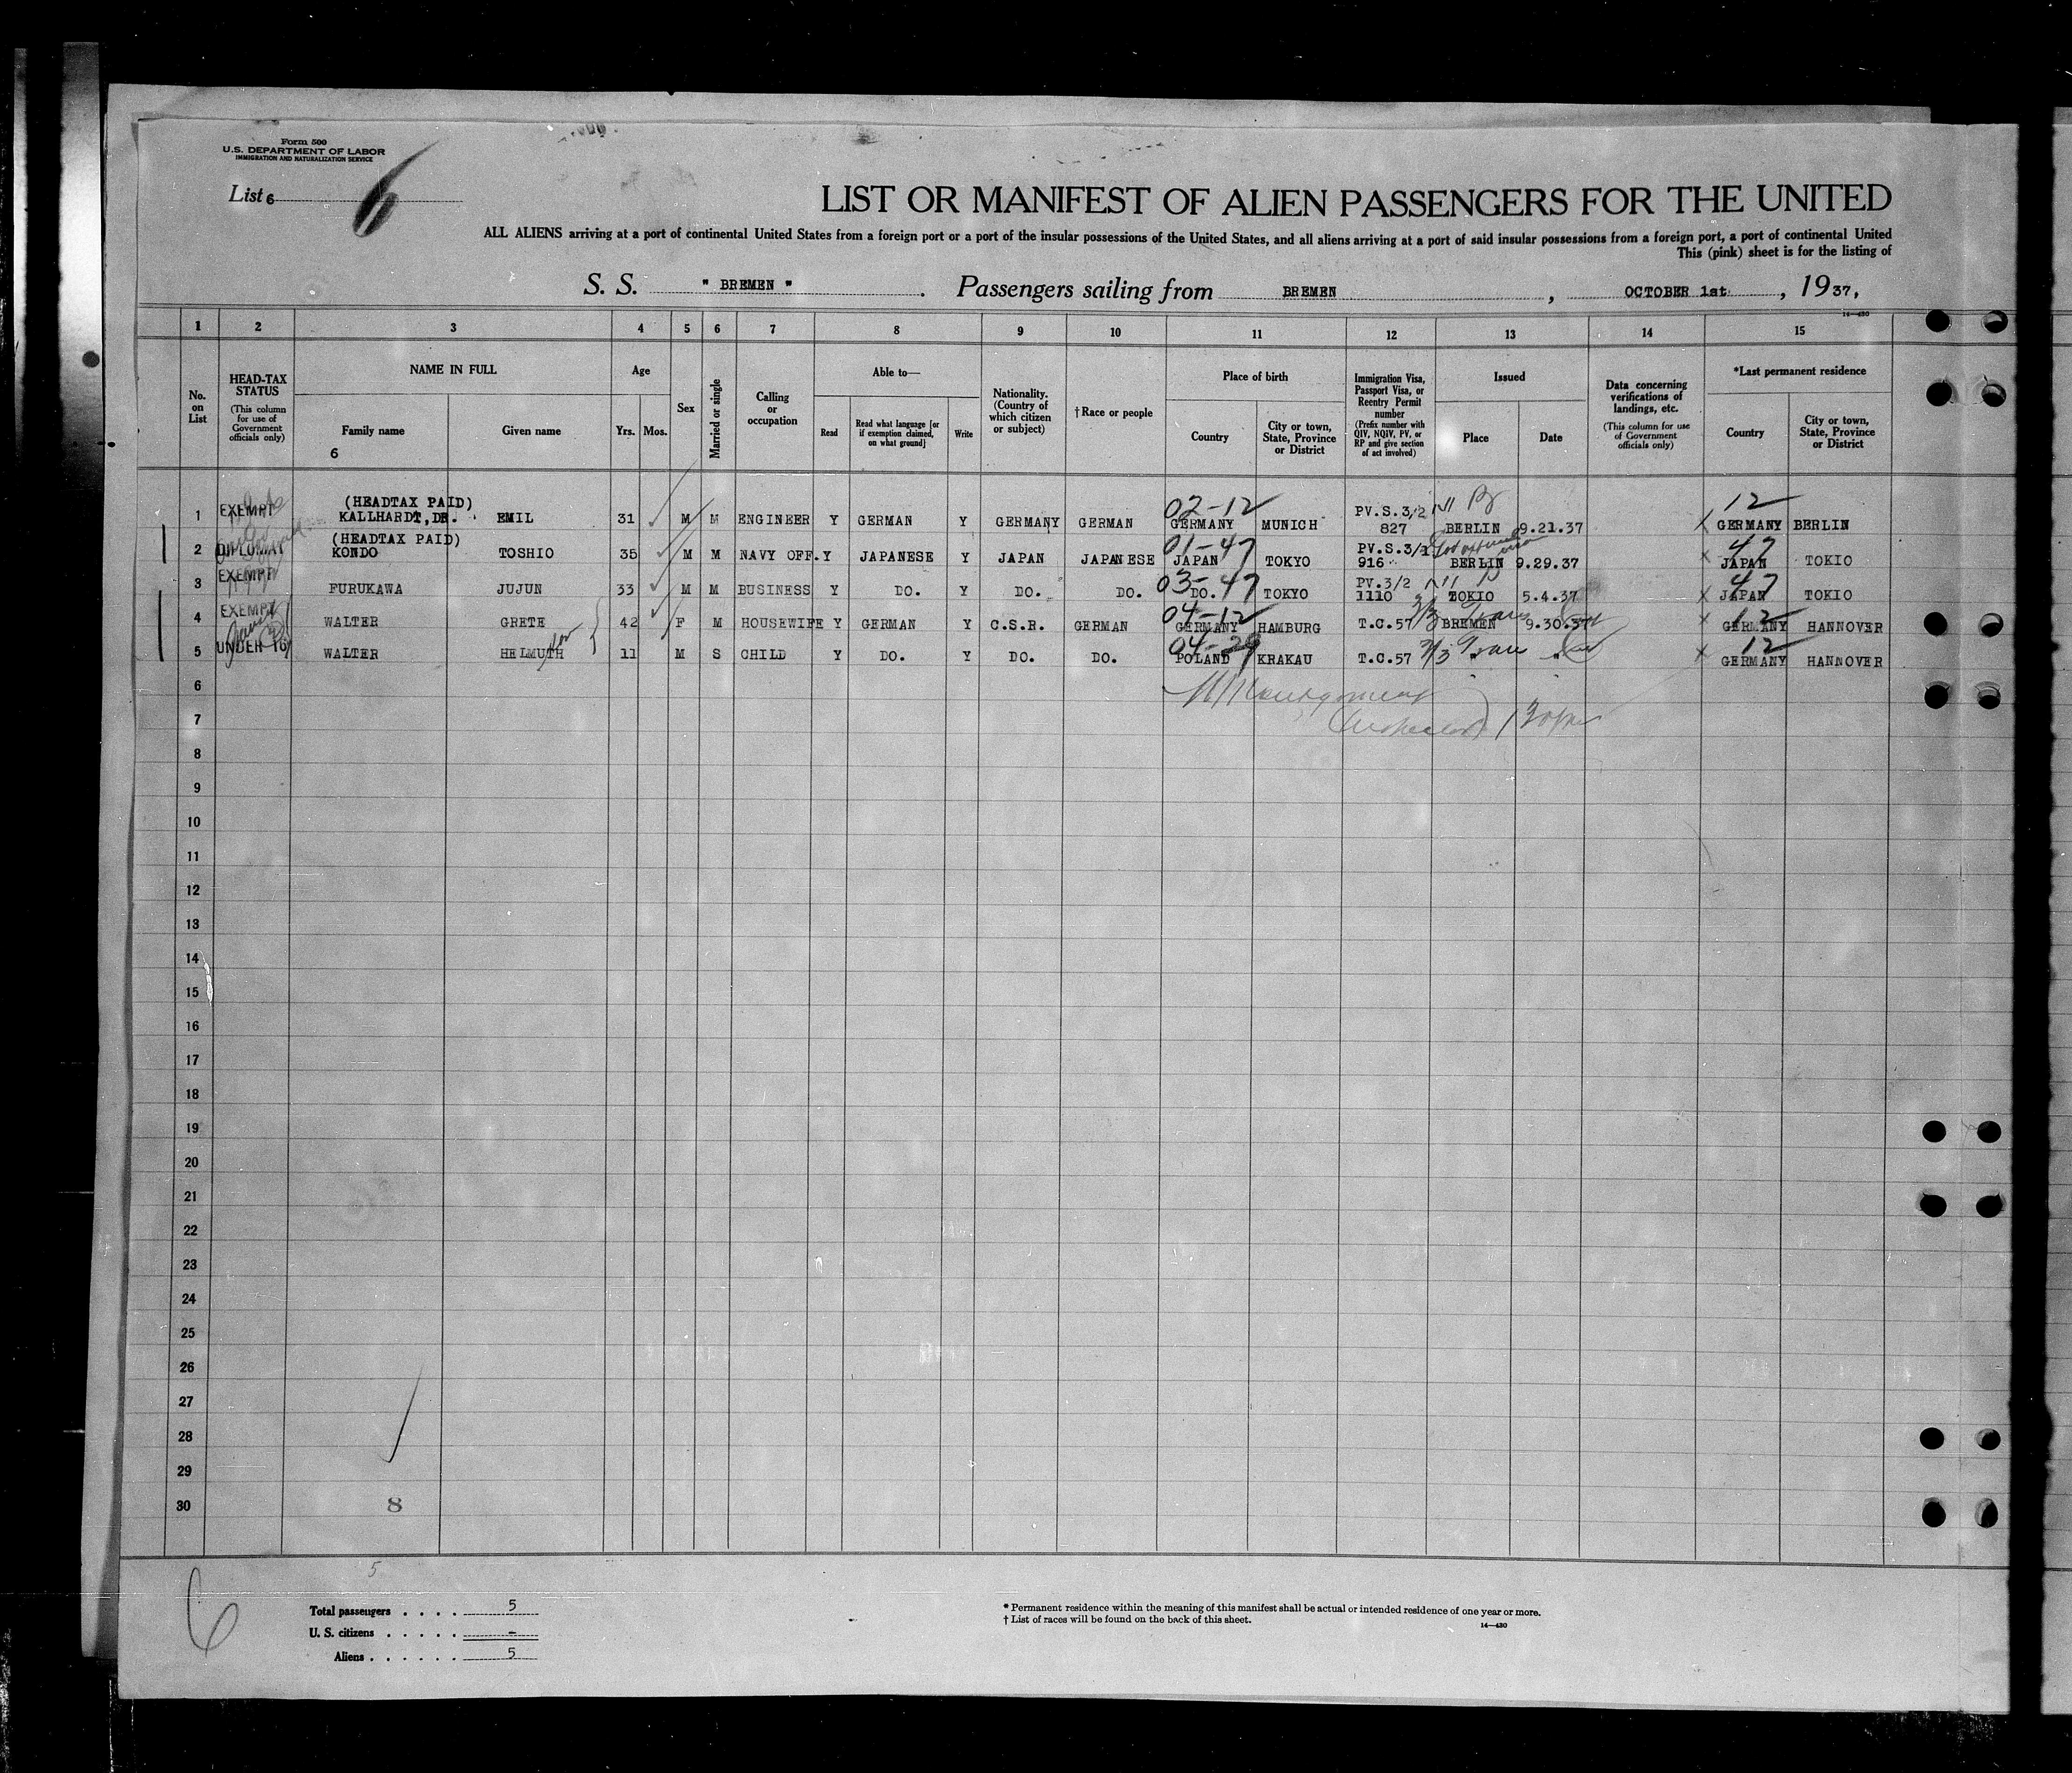 Form 500
U.S. DEPARTMENT OF LABOR
IMMIGRATION AND NATURALIZATION SERVICE
List 6 6
LIST OR MANIFEST OF ALIEN PASSENGERS FOR THE UNITED
ALL ALIENS arriving at a port of continental United States from a foreign port or a port of the insular possessions of the United States, and all aliens arriving at a port of said insular possessions from a foreign port, a port of continental United
This (pink) sheet is for the listing of
S. S. " BREMEN " . Passengers sailing from BREMEN , OCTOBER 1st , 19 37,
14—430
1 2 3 4 5 6 7 8 9 10 11 12 13 14 15
No. on List
HEAD-TAX STATUS (This column for use of Government officials only)
NAME IN FULL
Family name Given name
6
Age
Yrs. Mos.
Sex
Married or single
Calling or occupation
Able to—
Read
Read what language [or if exemption claimed, on what ground]
Write
Nationality. (Country of which citizen or subject)
†Race or people
Place of birth
Country
City or town, State, Province or District
Immigration Visa, Passport Visa, or Reentry Permit number (Prefix number with QIV, NQIV, PV, or RP and give section of act involved)
Issued
Place Date
Data concerning verifications of landings, etc. (This column for use of Government officials only)
*Last permanent residence
Country
City or town, State, Province or District
EXEMPT (HEADTAX PAID) 02-12 PV.S.3/2 12
1 KALLHARDT, DR. EMIL 31 M M ENGINEER Y GERMAN Y GERMANY GERMAN GERMANY MUNICH 827 BERLIN 9.21.37 GERMANY BERLIN
DIPLOMAT (HEADTAX PAID) 01-47 PV.S.3/1 47
2 KONDO TOSHIO 35 M M NAVY OFF. Y JAPANESE Y JAPAN JAPANESE JAPAN TOKYO 916 BERLIN 9.29.37 JAPAN TOKIO
EXEMPT 03-47 PV.3/2 47
3 FURUKAWA JUJUN 33 M M BUSINESS Y DO. Y DO. DO. DO. TOKYO 1110 TOKIO 5.4.37 JAPAN TOKIO
EXEMPT 04-12 12
4 WALTER GRETE 42 F M HOUSEWIFE Y GERMAN Y C.S.R. GERMAN GERMANY HAMBURG T.C.57 3/3 Trans BREMEN 9.30.37 GERMANY HANNOVER
UNDER 16 04-29 12
5 WALTER HELMUTH son 11 M S CHILD Y DO. Y DO. DO. POLAND KRAKAU T.C.57 3/3 Trans GERMANY HANNOVER
6
7
Inspector
8
9
10
11
12
13
14
15
16
17
18
19
20
21
22
23
24
25
26
27
28
29
30 8
5
6
Total passengers . . . . 5
U. S. citizens . . . . . –
Aliens . . . . . . 5
* Permanent residence within the meaning of this manifest shall be actual or intended residence of one year or more.
† List of races will be found on the back of this sheet.
14—430